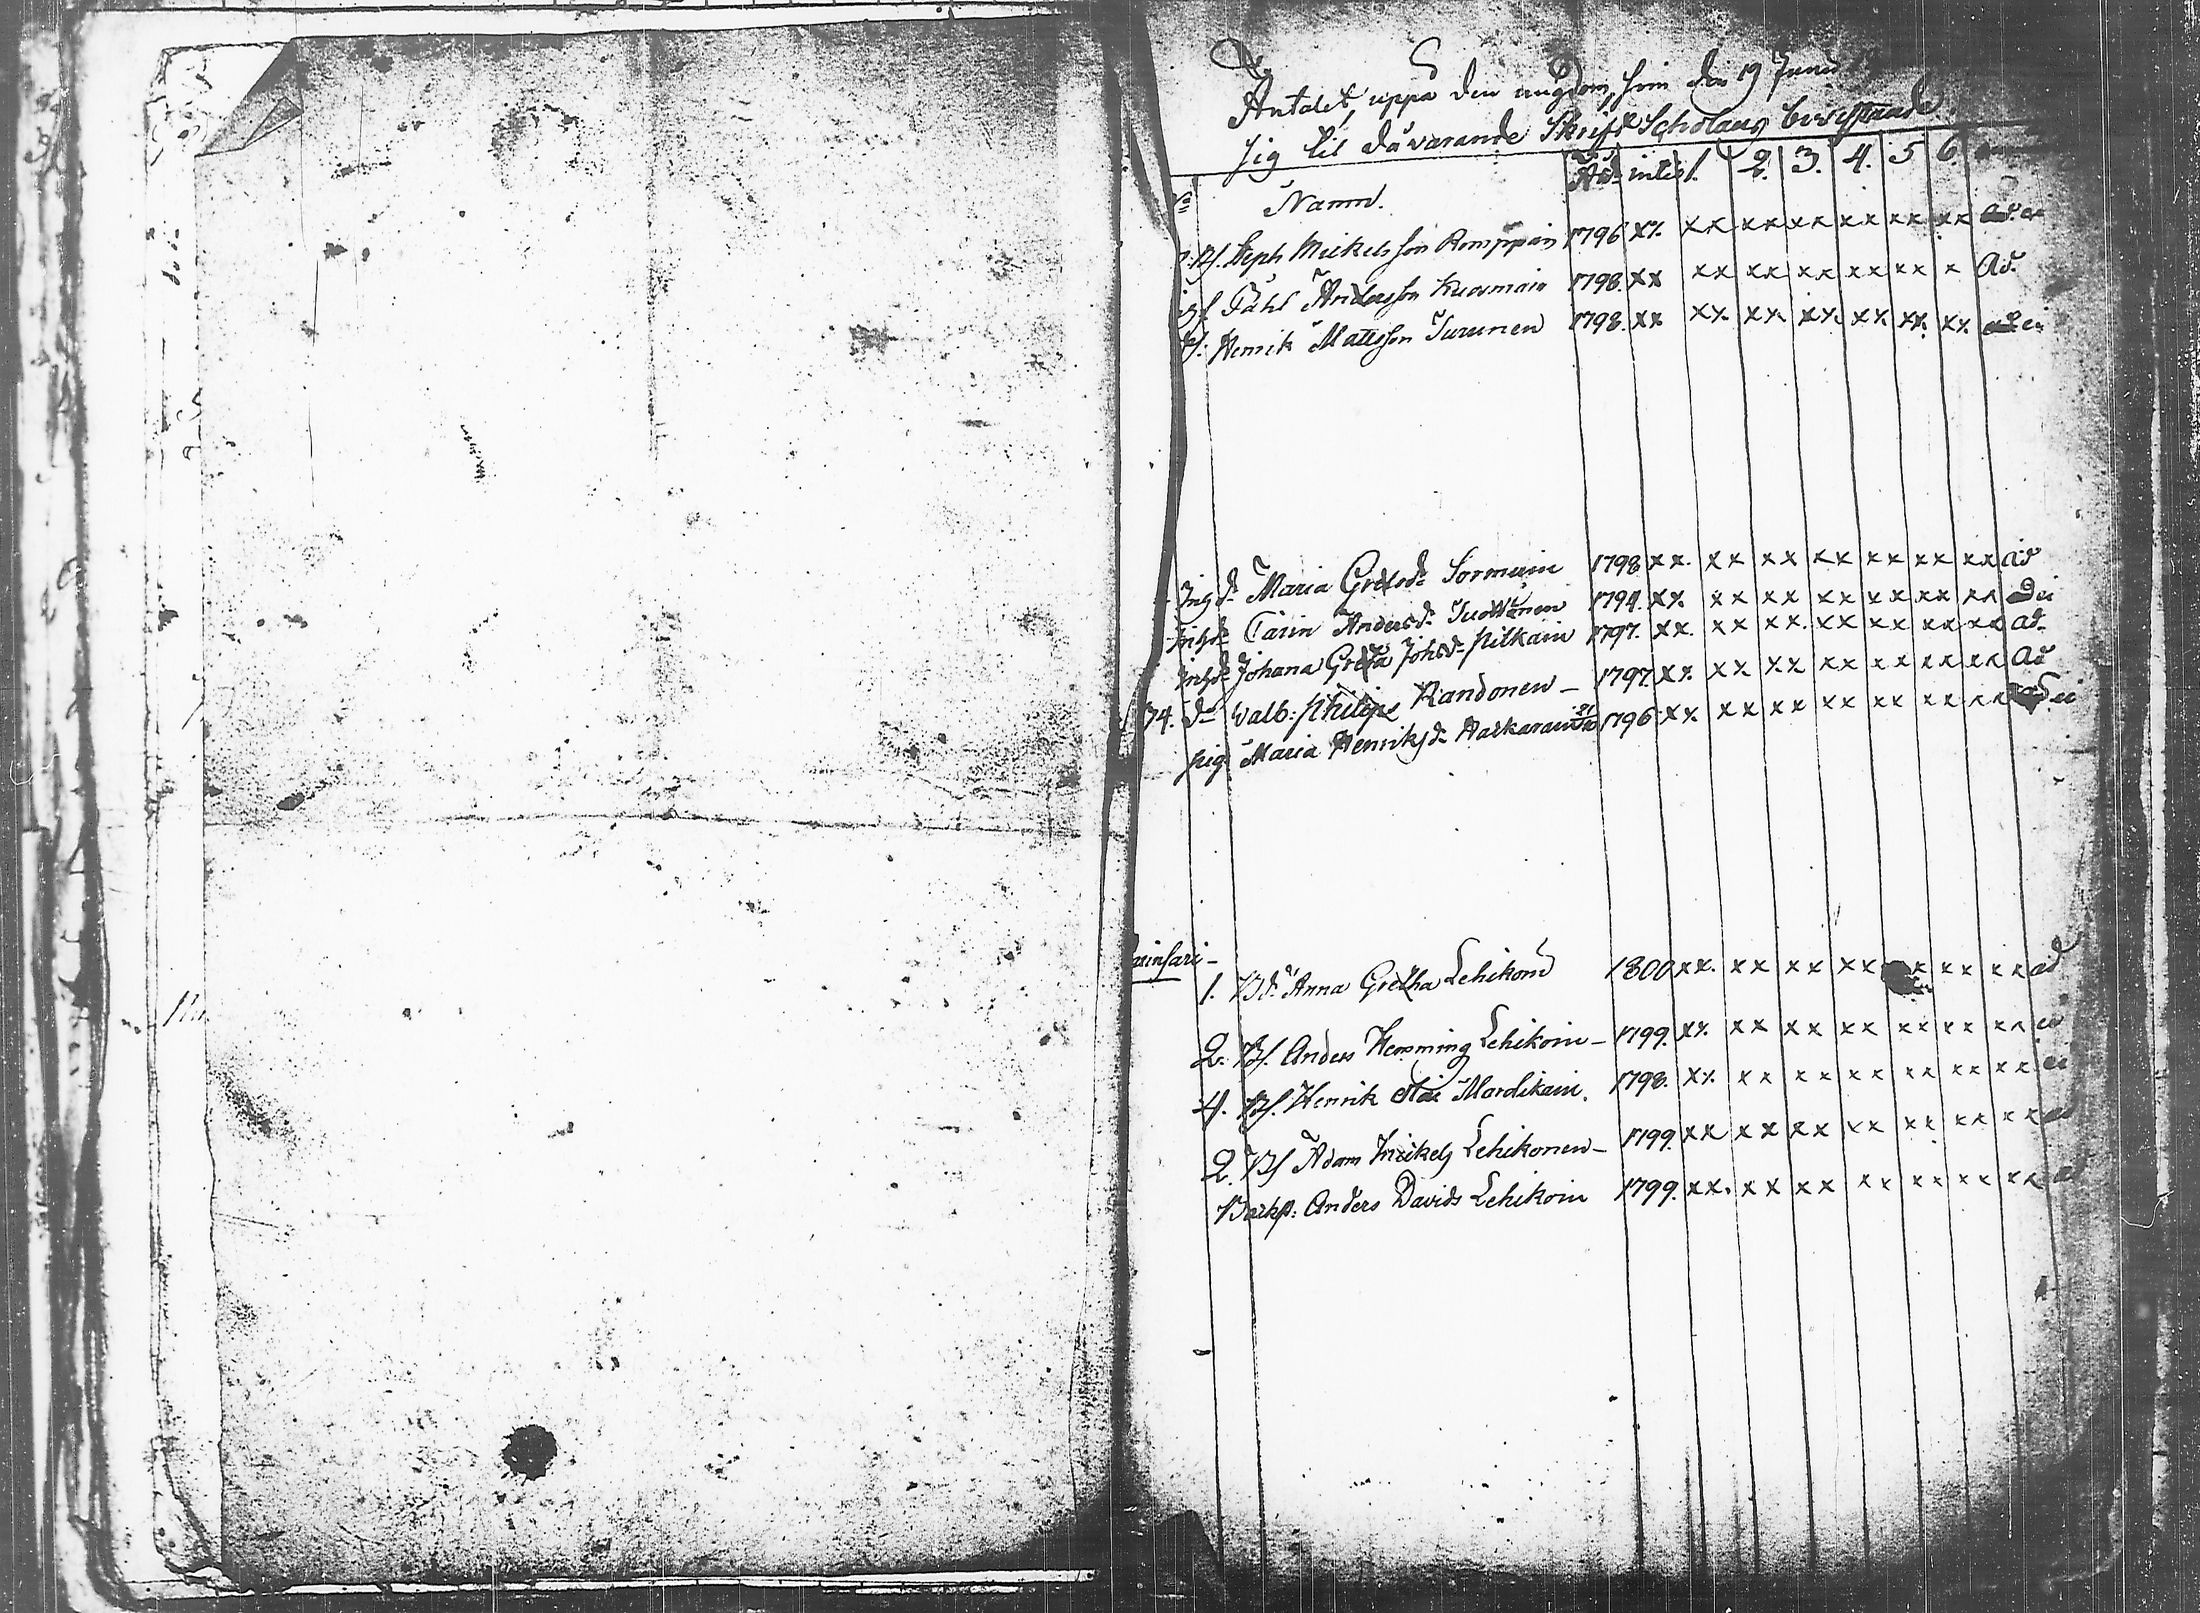 Antalet uppå den ungdom, som den 19 Junii
sig til dåvarande Skrift Scholans bevistande
Namn. 1. 2. 3. 4. 5 6.
Bs. Steph Mickelsson Romppain 1796 xx xx xx xx xx xx xx
Påhl Andersson Kuosmain 1798. xx xx xx xx xx xx x Ad.
Bs. Henrik Matsson Turunen 1798. xx xx xx xx xx xx xx
Inhd. Maria Sormuin 1798 xx xx xx xx xx xx xx ad
Inhd. Carin Andersd. 1794. xx xx xx xx xx xx xx
Inhd. Johana Greta Johsd. Pitkäin 1797. xx xx xx xx xx xx xx ad.
74. do Walb: Philips Randonen – 1797. xx xx xx xx xx xx xx ad
pig Maria Henriksd. 1796 xx xx xx xx xx xx xx
1. Bd. Anna Gretha Lehikoin 1800 xx xx xx xx x xx xx ad
2. Bs. Anders Hemming Lehikoin – 1799. xx xx xx xx xx xx xx
4. Bs. Henrik Mardikain. 1798. xx xx xx xx xx xx xx
2. Bs Adam Mickels Lehikonen – 1799. xx xx xx xx xx xx xx
Anders Davids Lehikoin 1799. xx xx xx xx xx xx xx